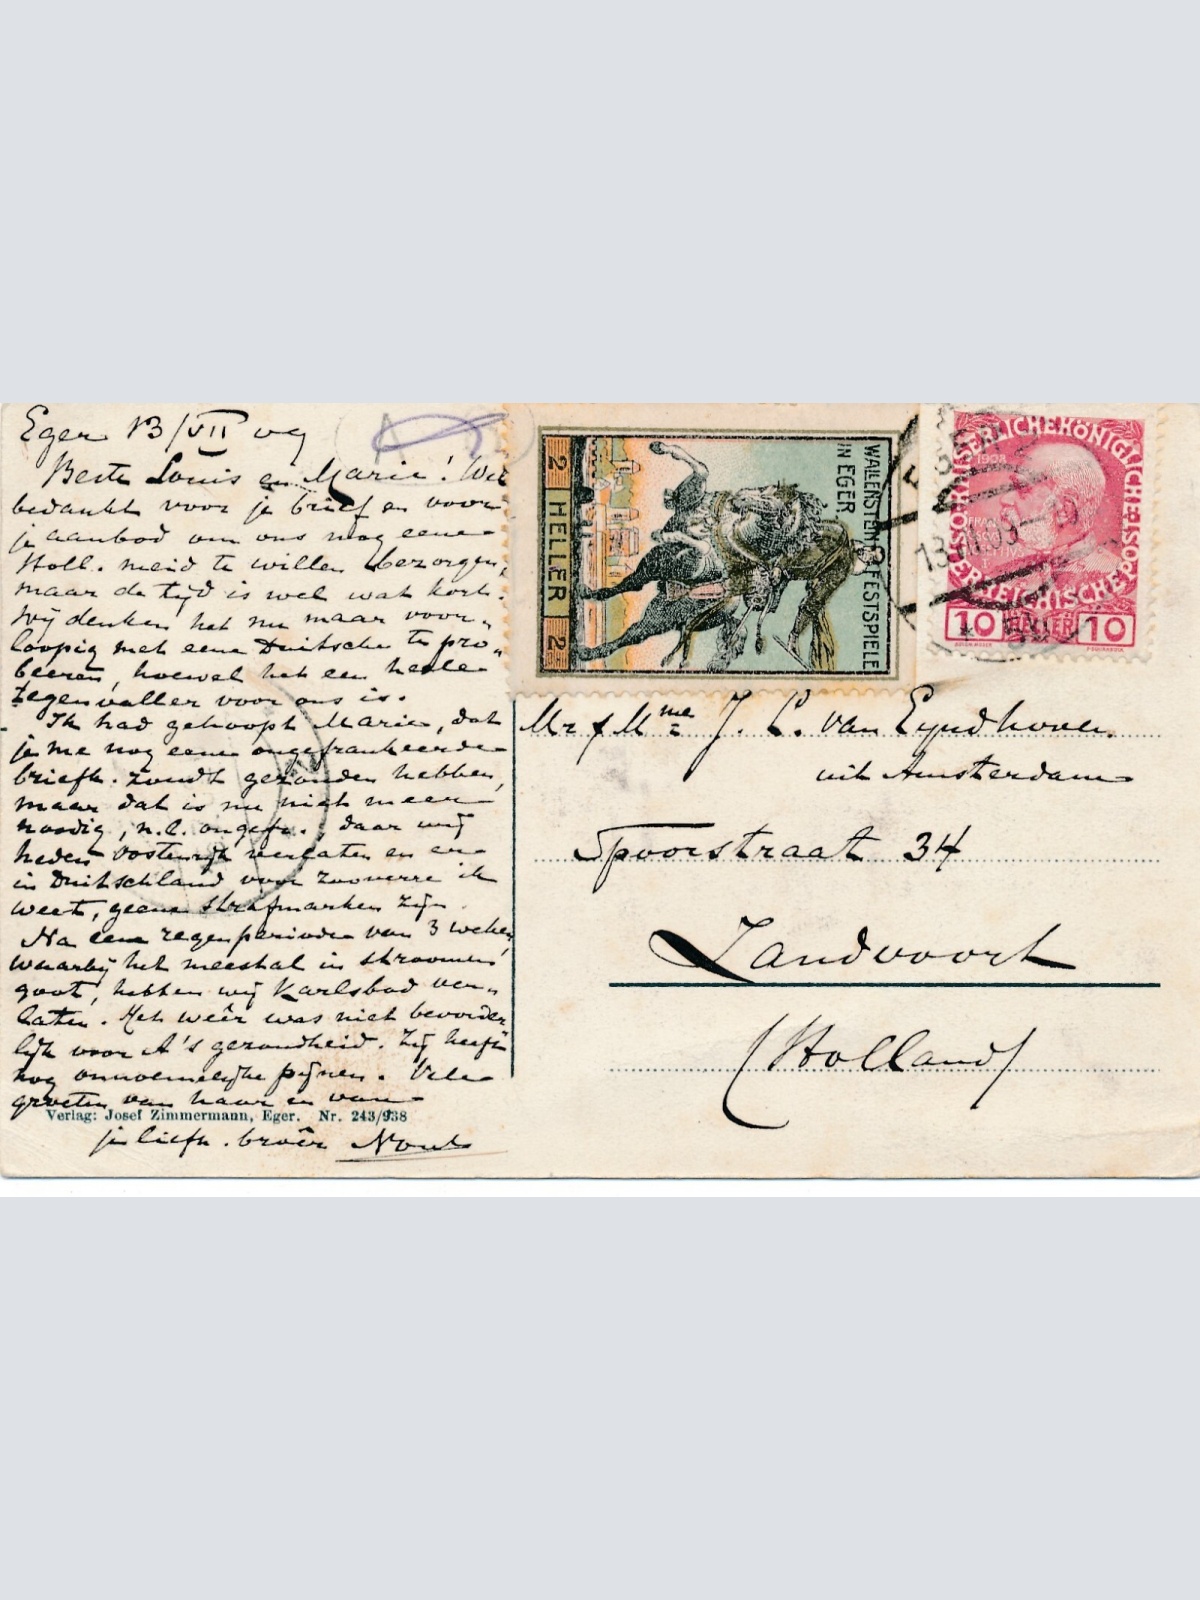 Eger 13/VII 09
Beste Louis en Marie! Wel
bedankt voor je brief en voor
je aanbod om ons nog eene
Holl. meid te willen bezorgen,
maar de tijd is wel wat kort.
Wij denken het nu maar voor-
loopig met eene Duitsche te pro-
beeren, hoewel het een heele
tegenvaller voor ons is.
Ik had gehoopt Marie, dat
je me nog eene ongefrankeerde
briefk. zoudt gezonden hebben,
maar dat is nu niet meer
noodig, n.l. ongefr., daar wij
heden Oostenrijk verlaten en er
in Duitschland voor zooverre ik
weet, geene strafmarken zijn.
Na eene regenperiode van 3 weken,
waarbij het meestal in stroomen
goot, hebben wij Karlsbad ver-
laten. Het weêr was niet bevorder
lijk voor A's gezondheid. Zij heeft
nog onnoemelijke pijnen. Vele
groeten van haar en van
je liefh. broêr Nout
Verlag: Josef Zimmermann, Eger. Nr. 243/938
WALLENSTEIN FESTSPIELE
IN EGER
2 HELLER 2
KAISERLICHE KÖNIGLICHE ÖSTERREICHISCHE POST
1908
10 HELLER 10
EGER
13.VII.09
Mr & Mme J. L. van Eyndhoven
uit Amsterdam
Spoorstraat 34
Zandvoort
(Holland)